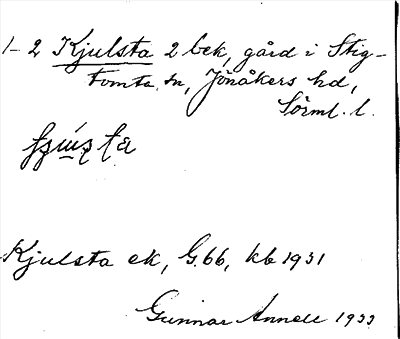 1-2 Kjulsta 2 bek, gård i Stig-
tomta sn, Jönåkers hd,
Sörml. l.
Kjulsta ek, G.66, kb 1931
Gunnar Annell 1933